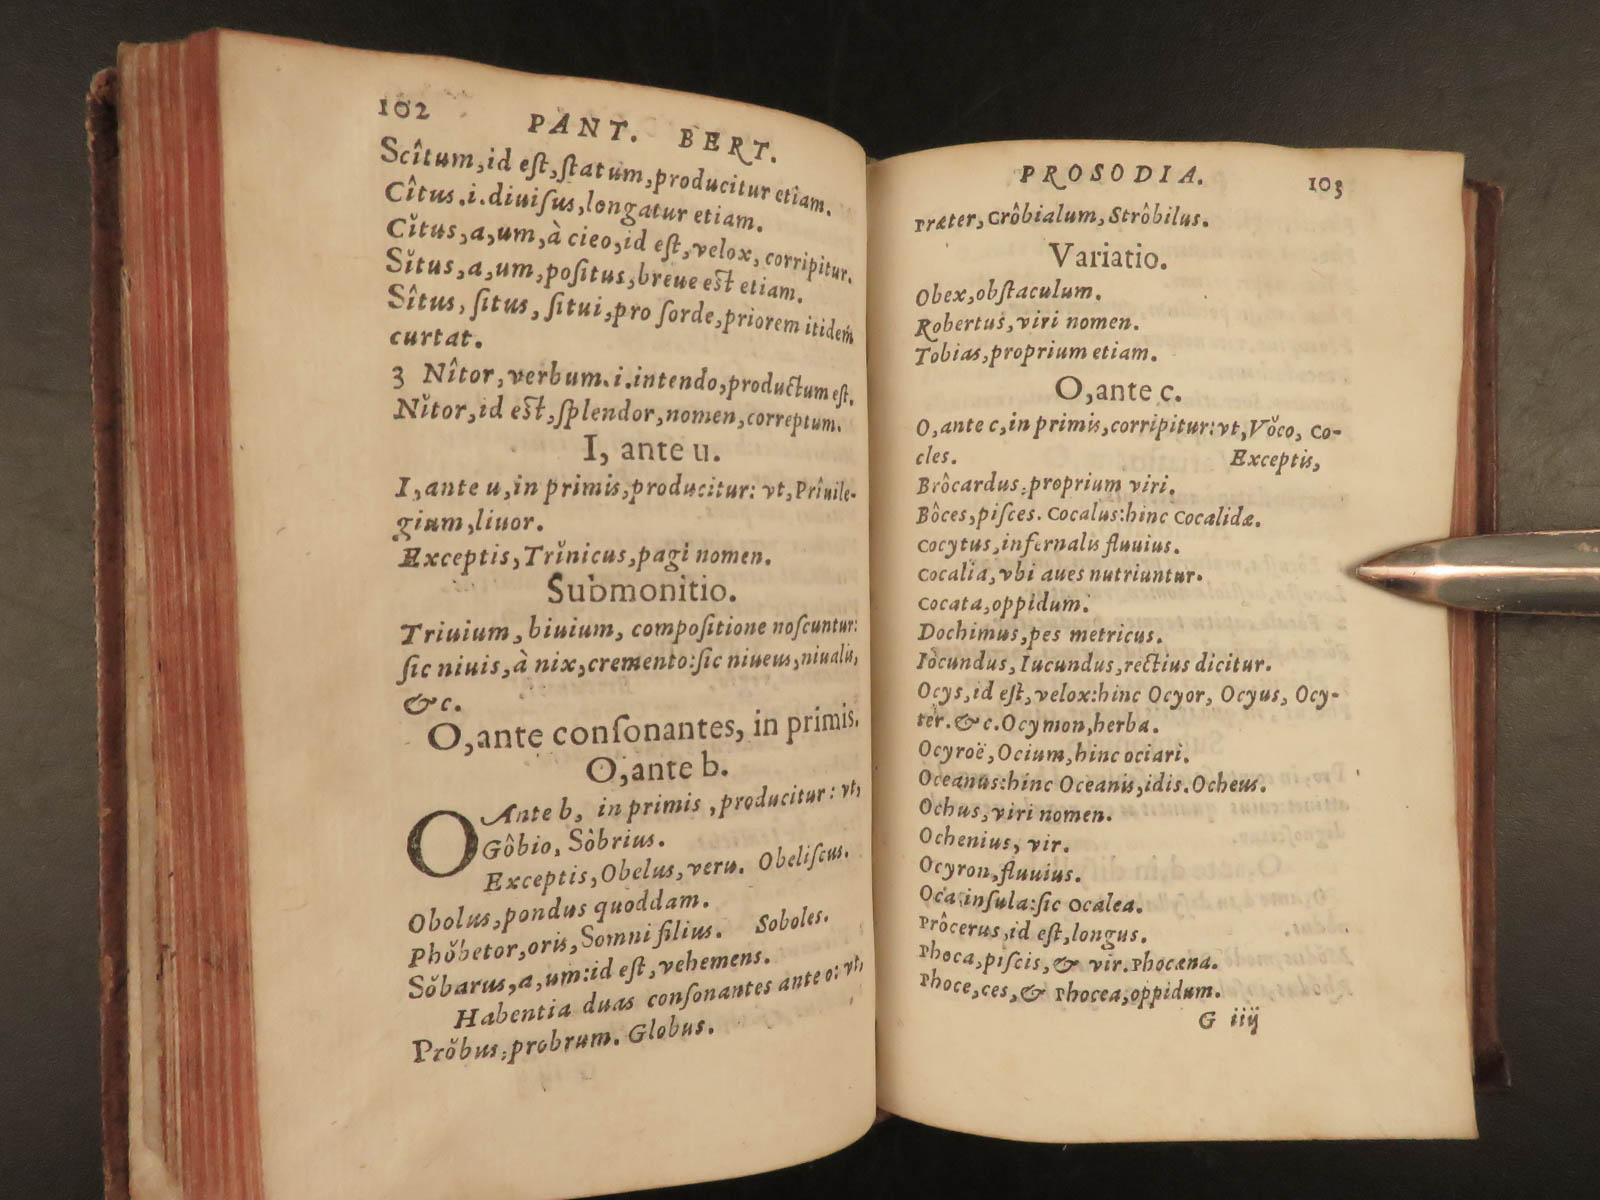 102
PANT. BERT.
Scîtum, id eſt, ſtatum, producitur etiam.
Cîtus.i.diuiſus, longatur etiam.
Cĭtus, a, um, à cieo, id eſt, velox, corripitur.
Sĭtus, a, um, poſitus, breue eſt etiam.
Sîtus, ſitus, ſitui, pro ſorde, priorem itidem
curtat.
3 Nîtor, verbum.i.intendo, productum eſt.
Nĭtor, id eſt, ſplendor, nomen, correptum.
I, ante u.
I, ante u, in primis, producitur: vt, Prîuile-
gium, liuor.
Exceptis, Trĭnicus, pagi nomen.
Submonitio.
Triuium, biuium, compoſitione noſcuntur:
ſic niuis, à nix, cremento: ſic niueus, niualis,
&c.
O, ante conſonantes, in primis.
O, ante b.
O Ante b, in primis, producitur: vt,
Gôbio, Sôbrius.
Exceptis, Obelus, veru. Obeliſcus.
Obolus, pondus quoddam.
Phŏbetor, oris, Somni filius. Soboles.
Sŏbarus, a, um: id eſt, vehemens.
Habentia duas conſonantes ante o: vt,
Prŏbus, probrum. Globus.
PROSODIA.
103
Præter, Crôbialum, Strôbilus.
Variatio.
Obex, obſtaculum.
Robertus, viri nomen.
Tobias, proprium etiam.
O, ante c.
O, ante c, in primis, corripitur: vt, Vŏco, Co-
cles. Exceptis,
Brôcardus, proprium viri.
Bôces, piſces. Cocalus: hinc Cocalidæ.
Cocytus, infernalis fluuius.
Cocalia, vbi aues nutriuntur.
Cocata, oppidum.
Dochimus, pes metricus.
Iocundus, Iucundus, rectius dicitur.
Ocys, id eſt, velox: hinc Ocyor, Ocyus, Ocy-
ter. &c. Ocymon, herba.
Ocyroë, Ocium, hinc ociari.
Oceanus: hinc Oceanis, idis. Ocheus.
Ochus, viri nomen.
Ochenius, vir.
Ocyron, fluuius.
Oca inſula: ſic Ocalea.
Prôcerus, id eſt, longus.
Phoca, piſcis, & vir. Phocæna.
Phoce, ces, & Phocea, oppidum.
G iiij